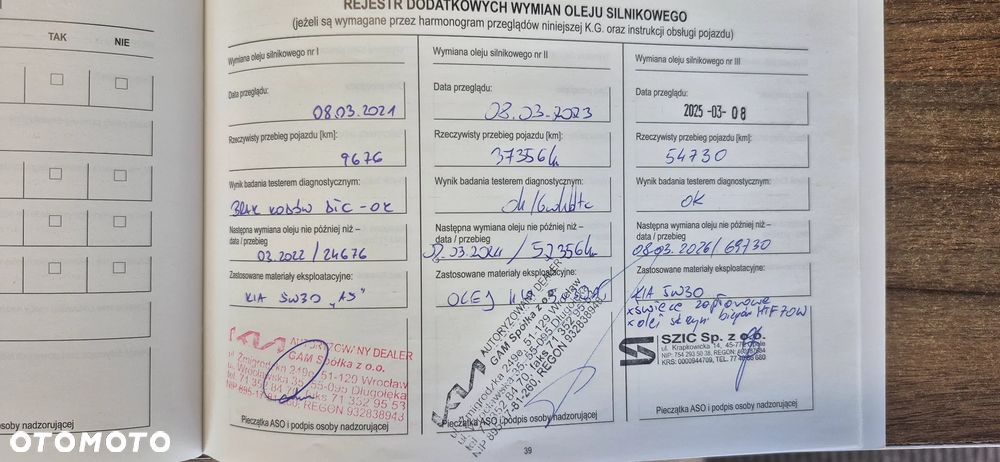 TAK NIE
REJESTR DODATKOWYCH WYMIAN OLEJU SILNIKOWEGO
(jeżeli są wymagane przez harmonogram przeglądów niniejszej K.G. oraz instrukcji obsługi pojazdu)
Wymiana oleju silnikowego nr I
Data przeglądu:
08.03.2021
Rzeczywisty przebieg pojazdu [km]:
9676
Wynik badania testerem diagnostycznym:
BRAK KODÓW DTC - OK
Następna wymiana oleju nie później niż –
data / przebieg
03.2022 / 24676
Zastosowane materiały eksploatacyjne:
KIA 5W30 „A5"
AUTORYZOWANY DEALER
GAM Spółka z o.o.
ul. Żmigrodzka 249a, 51-129 Wrocław
ul. Wrocławska 35, 55-095 Długołęka
tel. 71 352 84 70, faks 71 352 95 53
NIP 895-17-81-260, REGON 932838943
Pieczątka ASO i podpis osoby nadzorującej
Wymiana oleju silnikowego nr II
Data przeglądu:
08.03.2023
Rzeczywisty przebieg pojazdu [km]:
37356 km
Wynik badania testerem diagnostycznym:
Następna wymiana oleju nie później niż –
data / przebieg
03.2024 / 52356 km
Zastosowane materiały eksploatacyjne:
OLEJ
AUTORYZOWANY DEALER
GAM Spółka z o.o.
ul. Żmigrodzka 249a, 51-129 Wrocław
ul. Wrocławska 35, 55-095 Długołęka
tel. 71 352 84 70, faks 71 352 95 53
NIP 895-17-81-260, REGON 932838943
Pieczątka ASO i podpis osoby nadzorującej
Wymiana oleju silnikowego nr III
Data przeglądu:
2025 -03- 08
Rzeczywisty przebieg pojazdu [km]:
54730
Wynik badania testerem diagnostycznym:
OK
Następna wymiana oleju nie później niż –
data / przebieg
08.03.2026 / 69730
Zastosowane materiały eksploatacyjne:
KIA 5W30
x świece zapłonowe
x olej skrzyni biegów MTF 70W
SZIC Sp. z o.o.
ul. Krapkowicka 14, 45-770 Opole
NIP: 754 293 50 38, REGON:
KRS: 0000944709, TEL. 77
Pieczątka ASO i podpis osoby nadzorującej
podpis osoby nadzorującej
39
OTOMOTO